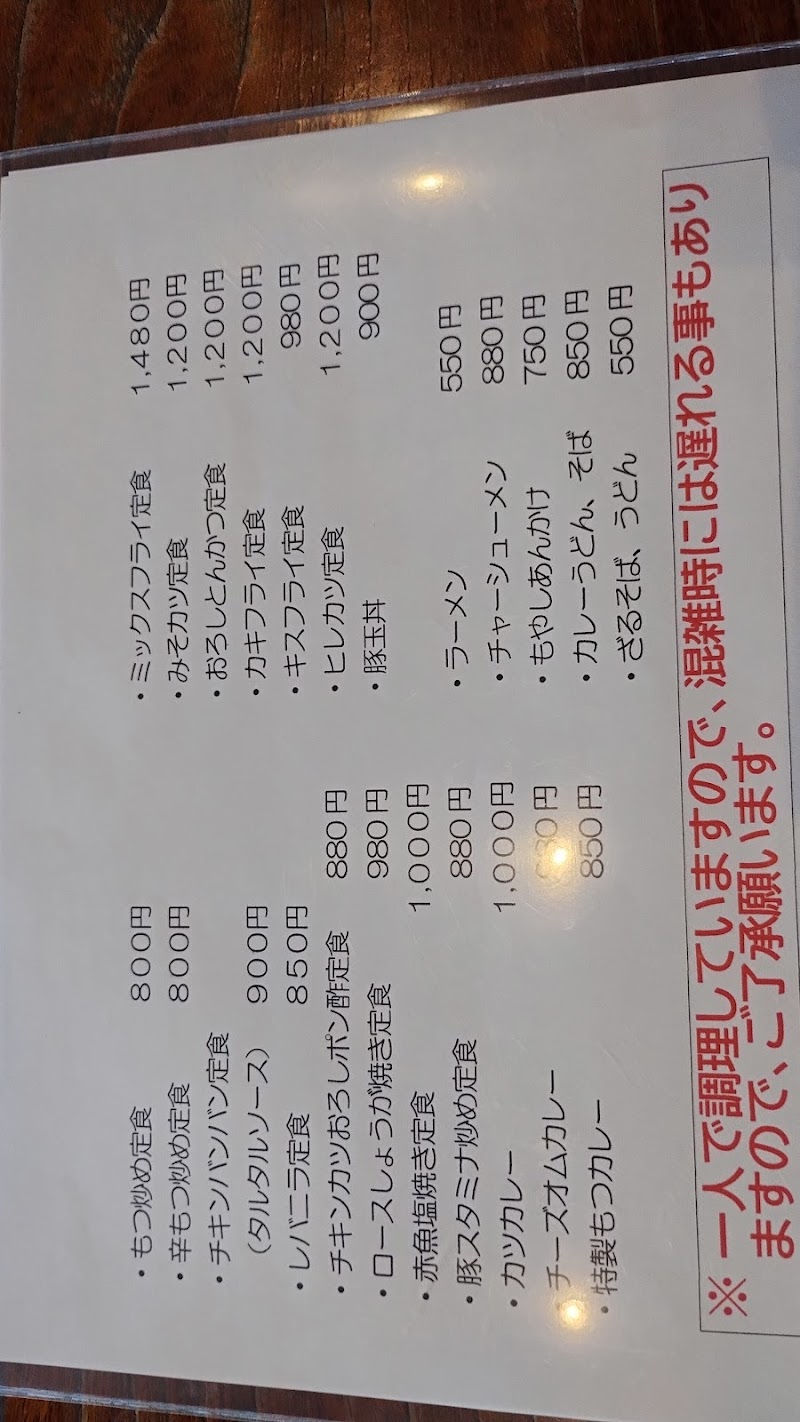 ・もつ炒め定食　８００円
・辛もつ炒め定食　８００円
・チキンバンバン定食
（タルタルソース）　９００円
・レバニラ定食　８５０円
・チキンカツおろしポン酢定食　880円
・ロースしょうが焼き定食　980円
・赤魚塩焼き定食　1,000円
・豚スタミナ炒め定食　880円
・カツカレー　1,000円
・チーズオムカレー
・特製もつカレー　850円
・ミックスフライ定食　1,480円
・みそカツ定食　1,200円
・おろしとんかつ定食　1,200円
・カキフライ定食　1,200円
・キスフライ定食　980円
・ヒレカツ定食　1,200円
・豚玉丼　900円
・ラーメン　550円
・チャーシューメン　880円
・もやしあんかけ　750円
・カレーうどん、そば　850円
・ざるそば、うどん　550円
※一人で調理していますので、混雑時には遅れる事もあり
ますので、ご了承願います。